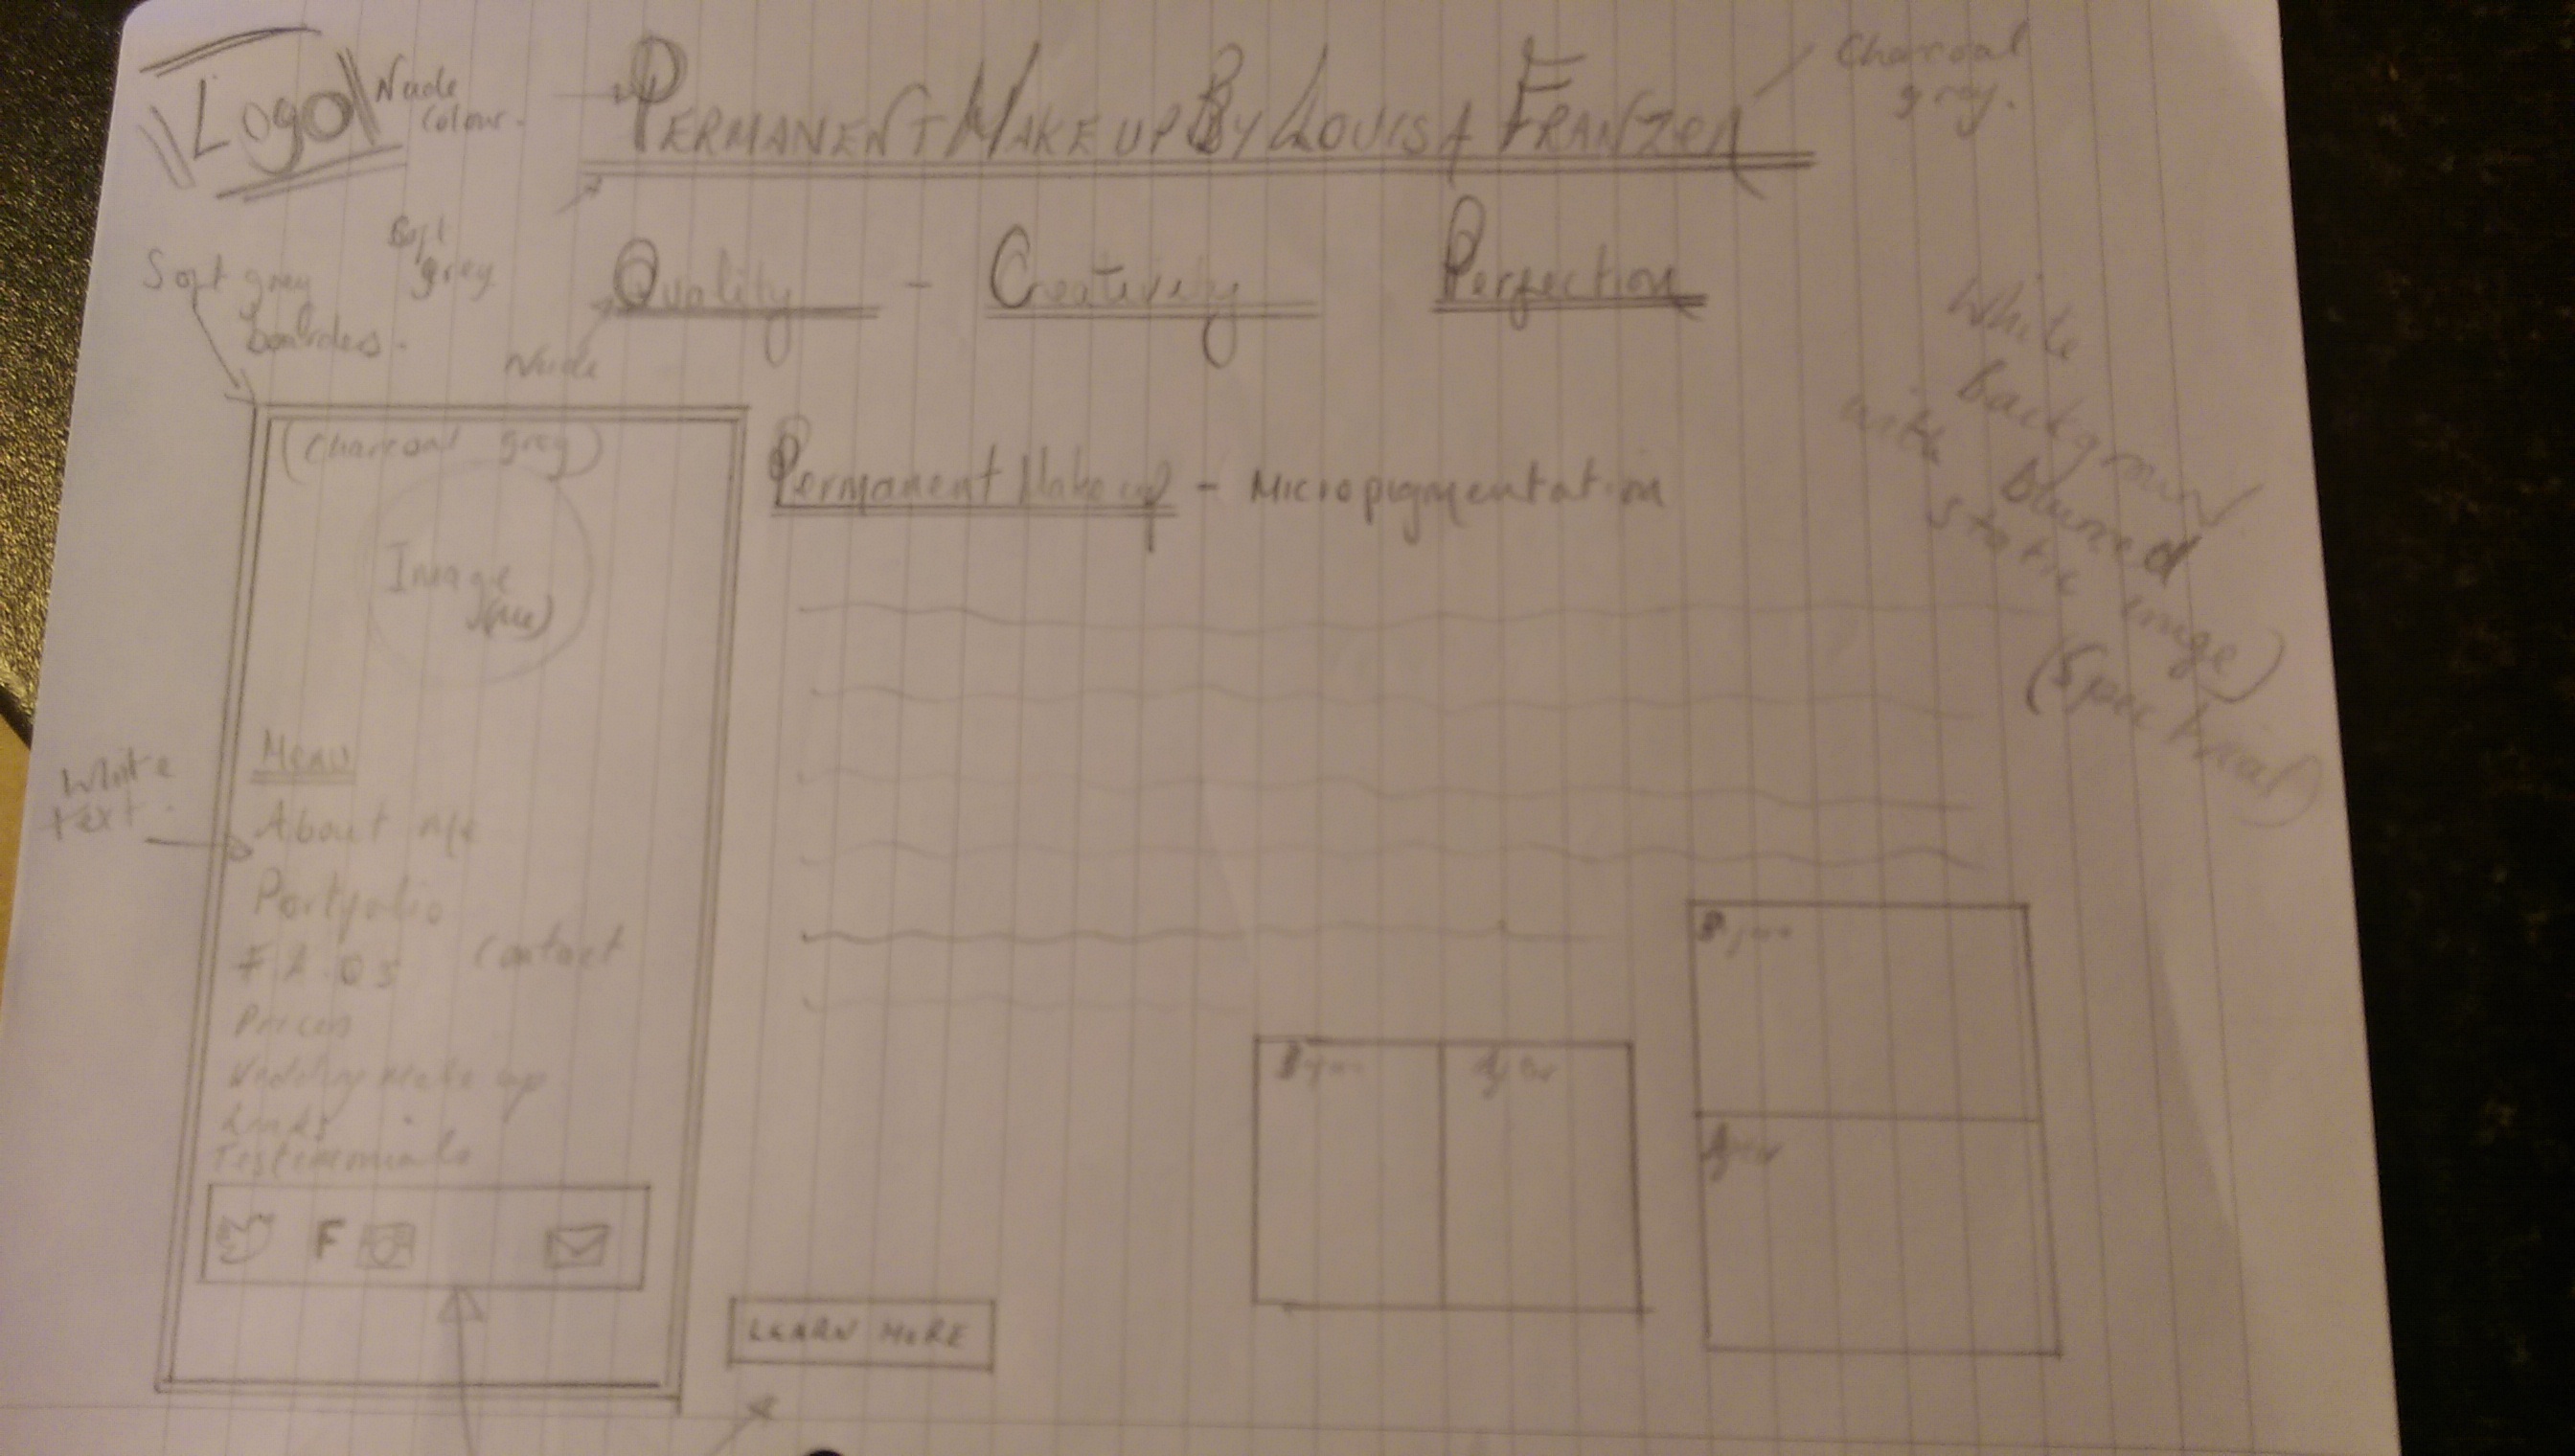 Logo
Nude
Colour.
PERMANENT MAKE UP BY LOUISA FRANZEN
Charcoal
grey.
Soft
grey
Soft grey
boarders.
Quality - Creativity Perfection
Nude
White
Background
with blurred
static image
(Charcoal grey)
Image
(me)
Permanent Make up - Micropigmentation
Menu
White
text.
About me
Portfolio
F.A.Q S Contact
Prices
Wedding make up
Links
Testemonials
Before
After
Before After
F
LEARN MORE